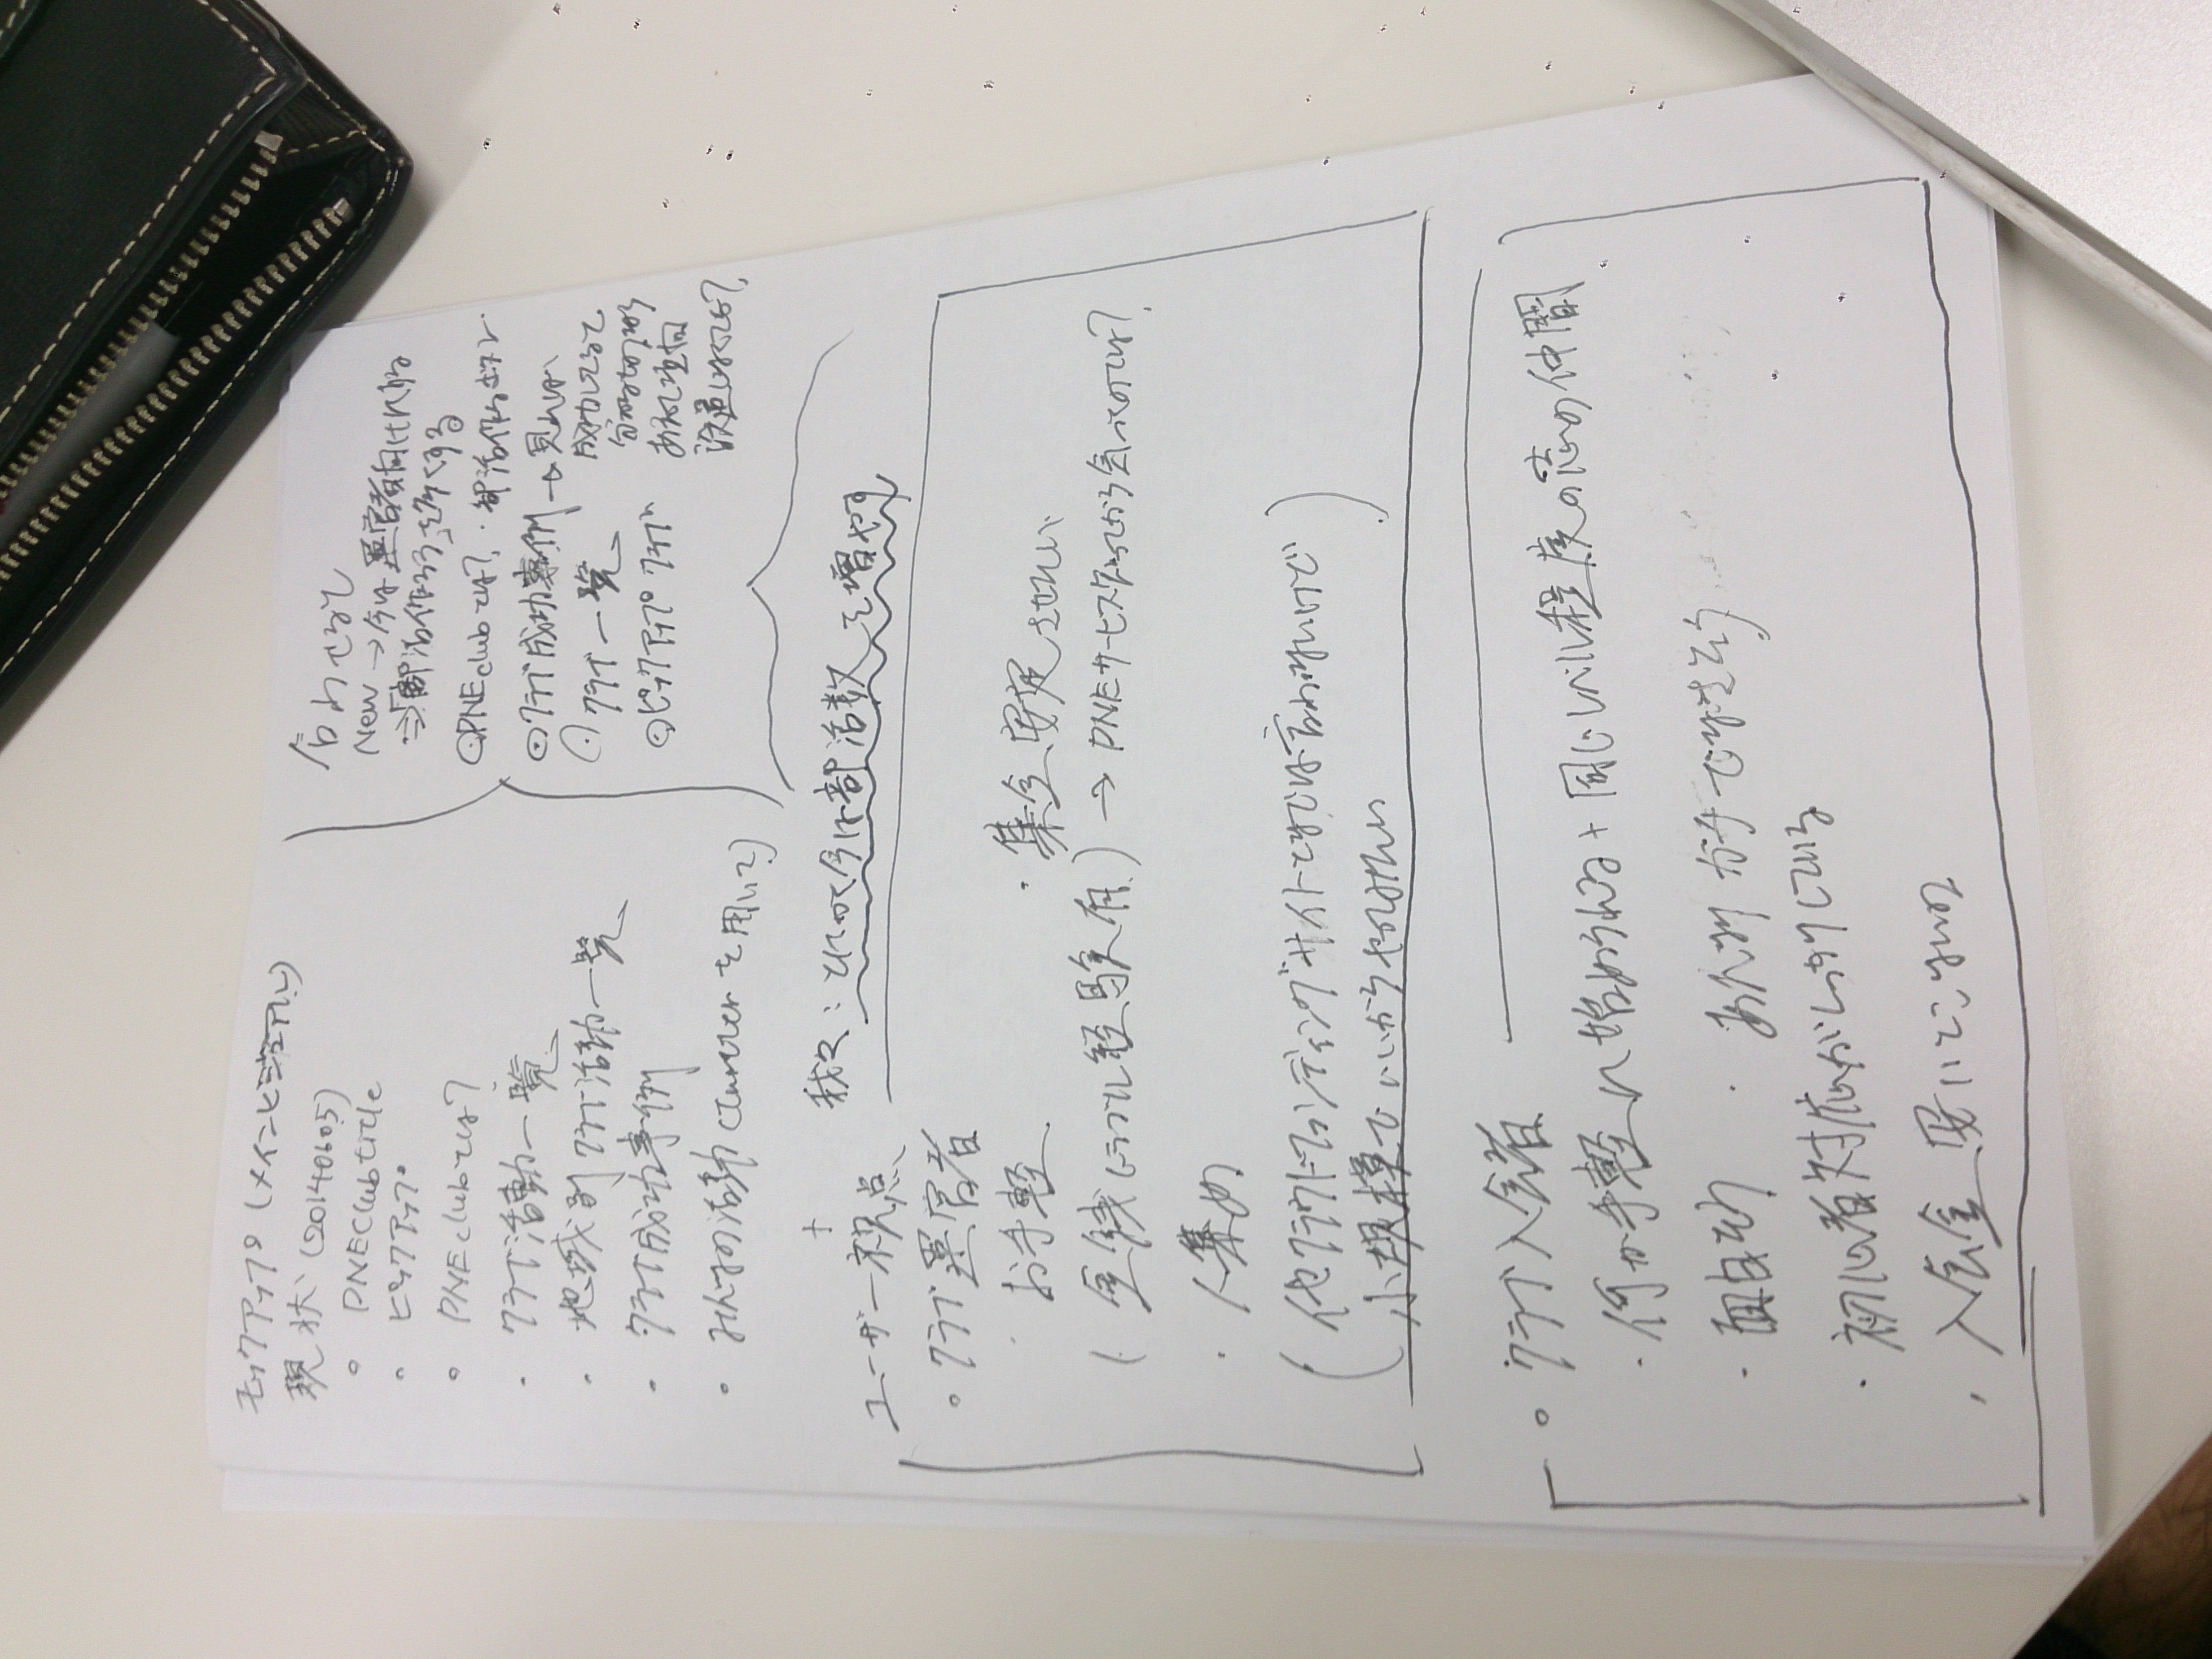 モックアップ(メインビジュアル)
現状(20140605)
○ DNEClub title
○ ピックアップ
○ DNEclubとは?
・ クラブ活動一覧
・ 地域別クラブ活動一覧
・ クラブ成功事例
○ みんなの活動(Twitterを用いて)
合わせると
New → 今は運営者向けにする
⇒「部活作ろう」を多くする
DNEclubとは?・部活作るボタン
クラブ成功事例 → 見れば
成功してると
分かるものから
あえて項目
設置しなくても?
クラブ一覧
ピックアップ クラブ
+
我々:とにかく今は部活数を増やす
ユーザー視点
○ クラブ運営者
・ お手軽
・ 集金安定させたい
(金銭トラブル経験有) → DNEサービス知ってから会ったのでは?
・ 人集め
(他クラウドファンディングサイトとまでは言わないけど
小規模でいいからやってみたい)
○ クラブ入会者
・ 何か手軽に始められる+同じレベル程度の志の仲間
・ 面白そう ・ あんまりガチでなさそう
・ 初心者対応がしっかりしている
・ 入会金安いとこないの